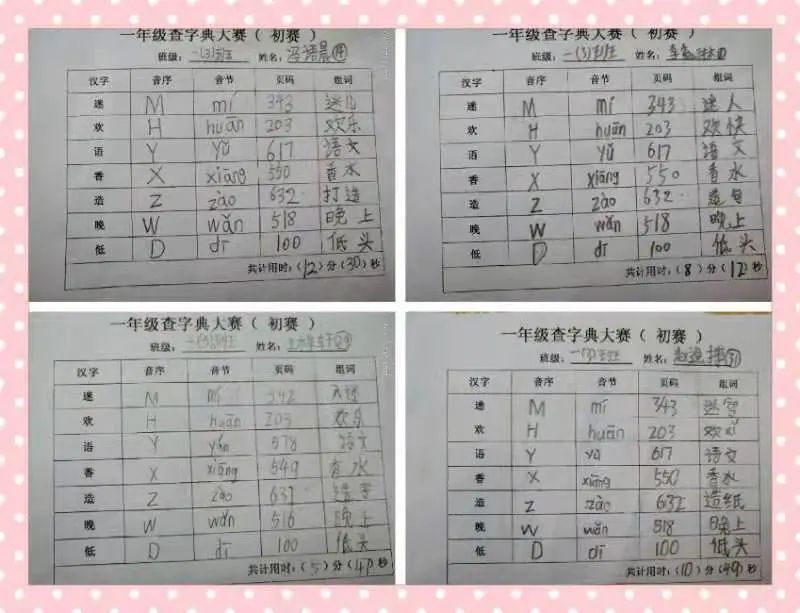 一年级查字典大赛（初赛）
班级：一(3)班 姓名：冯语晨
汉字 音序 音节 页码 组词
迷 M mí 343 迷几
欢 H huān 203 欢乐
语 Y yǔ 617 语文
香 X xiāng 550 香水
造 Z zào 632 打造
晚 W wǎn 518 晚上
低 D dī 100 低头
共计用时：(12)分(30)秒
一年级查字典大赛（初赛）
班级：一(3)班 姓名：
汉字 音序 音节 页码 组词
迷 M mí 343 迷人
欢 H huān 203 欢快
语 Y yǔ 617 语文
香 X xiāng 550 香水
造 Z zào 632 造句
晚 W wǎn 518 晚上
低 D dī 100 低头
共计用时：(8)分(12)秒
一年级查字典大赛（初赛）
班级：一(3)班 姓名：
汉字 音序 音节 页码 组词
迷 M mí 342
欢 H huān 203 欢乐
语 Y 578 语文
香 X xiāng 549 香水
造 Z zào 631
晚 W wǎn 516 晚上
低 D dī 100 低头
共计用时：(5)分(41)秒
一年级查字典大赛（初赛）
班级：一(3)班 姓名：
汉字 音序 音节 页码 组词
迷 M mí 343 迷宫
欢 H huān 203 欢xǐ
语 Y yǔ 617 语文
香 X xiāng 550 香水
造 Z zào 632 造纸
晚 W wǎn 518 晚上
低 D dī 100 低头
共计用时：(10)分(49)秒